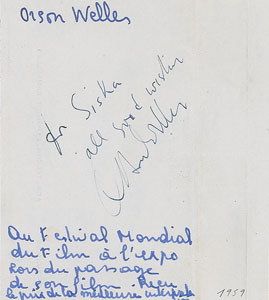 Orson Welles
for Siska
all good wishes
Orson Welles
Au Festival Mondial
du Film à l'expo
Lors du passage
de son film Recu
le prix de la meilleure
1959